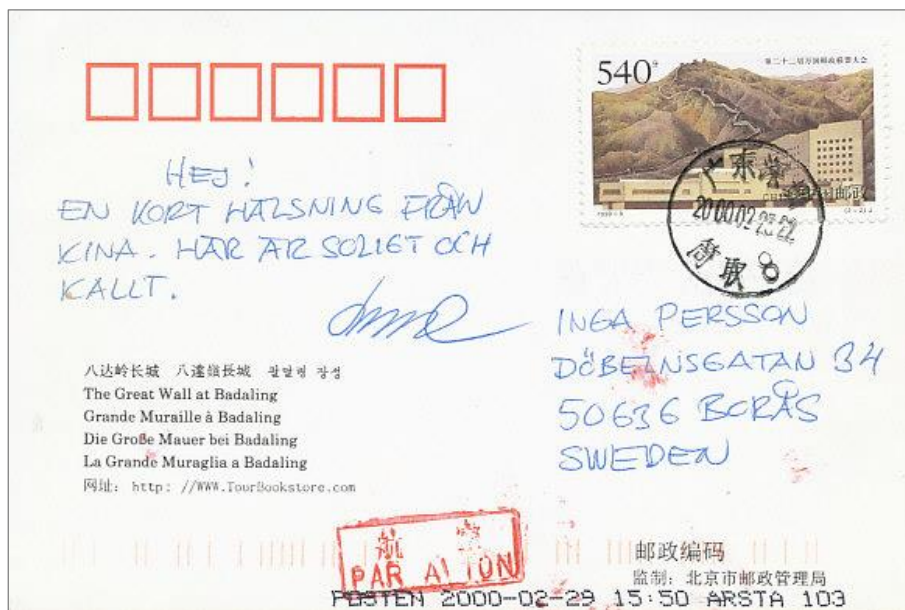 540分
第二十二届万国邮政联盟大会
中国邮政
广东深
2000.02.23.22
8
HEJ!
EN KORT HÄLSNING FRÅN
KINA. HÄR ÄR SOLIGT OCH
KALLT.
INGA PERSSON
DÖBELNSGATAN 34
50636 BORÅS
SWEDEN
八达岭长城 八達嶺長城 팔달령 장성
The Great Wall at Badaling
Grande Muraille à Badaling
Die Große Mauer bei Badaling
La Grande Muraglia a Badaling
网址: http: //WWW.TourBookstore.com
航 空
PAR AVION
邮政编码
监制: 北京市邮政管理局
POSTEN 2000-02-29 15:50 ARSTA 103